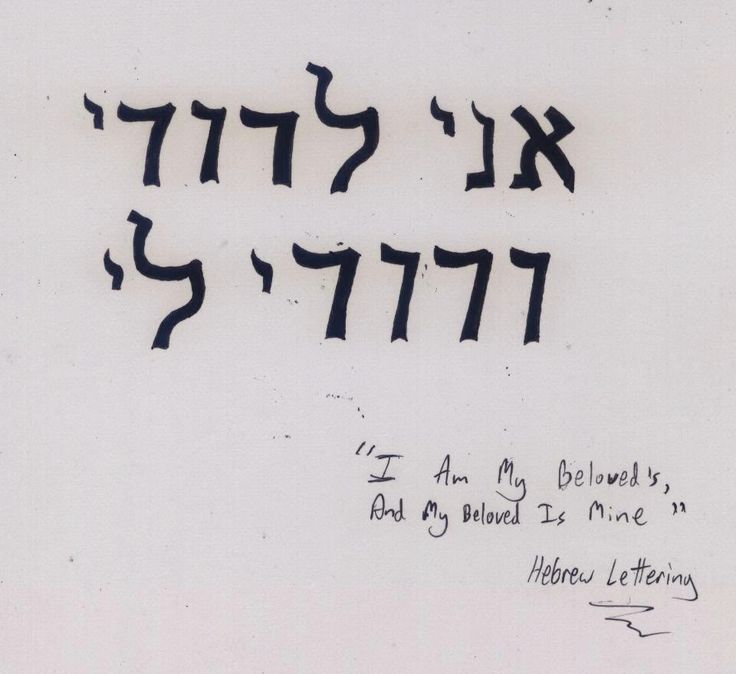 אני לדודי
ודודי לי
"I Am My Beloved's,
And My Beloved Is Mine"
Hebrew Lettering